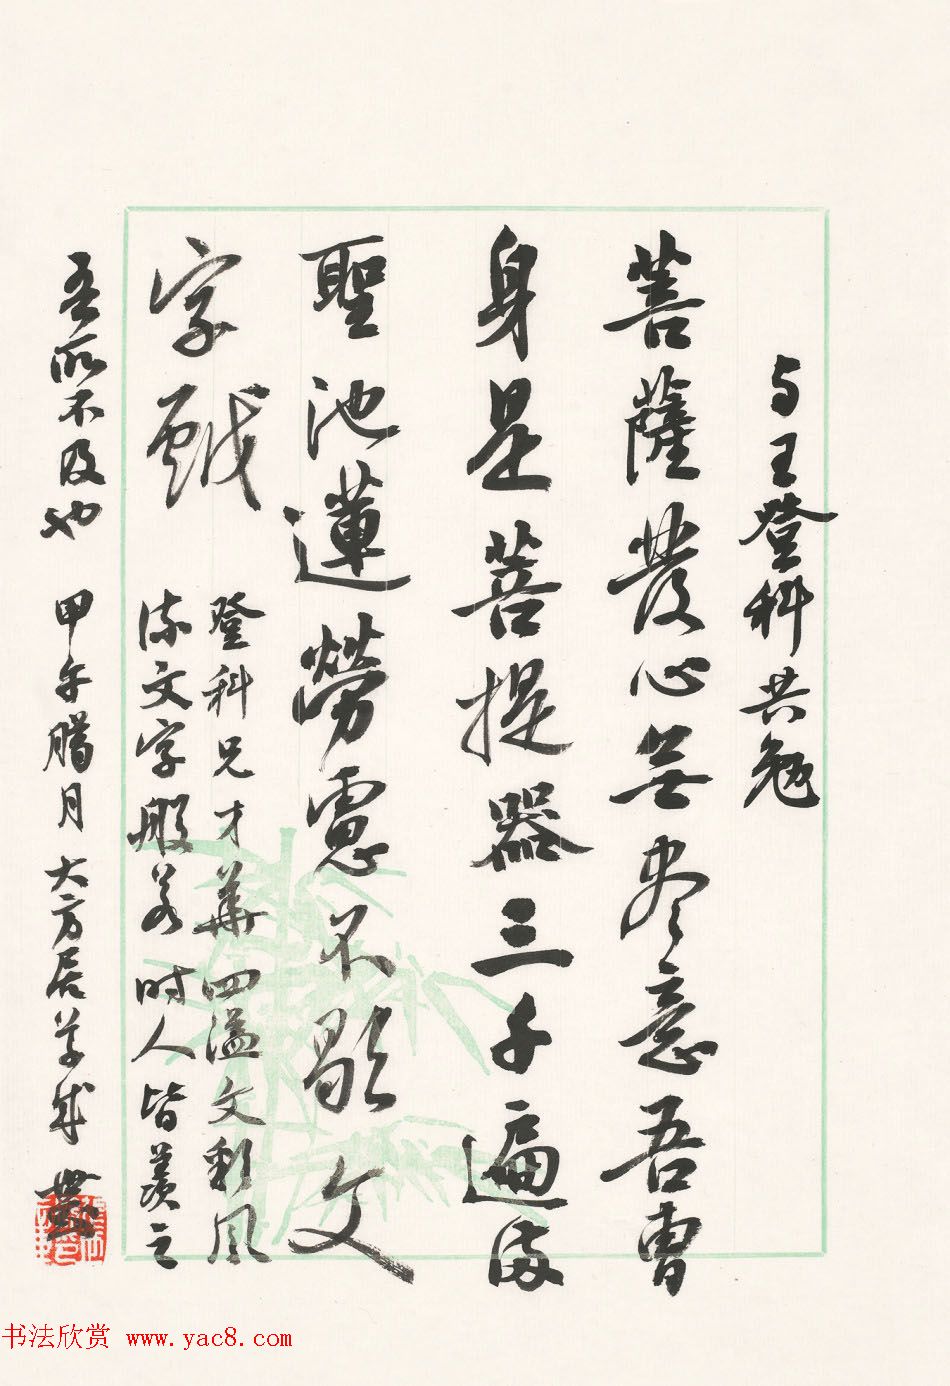 与王登科共勉
菩薩發心無尽意吾曹
身是菩提器三千遍满
聖池蓮勞慮不歇文
字戲
登科兄才華四溢文彩風
流文字般若时人皆羨之
吾所不及也 甲午腊月大方居草成
书法欣赏 www.yac8.com